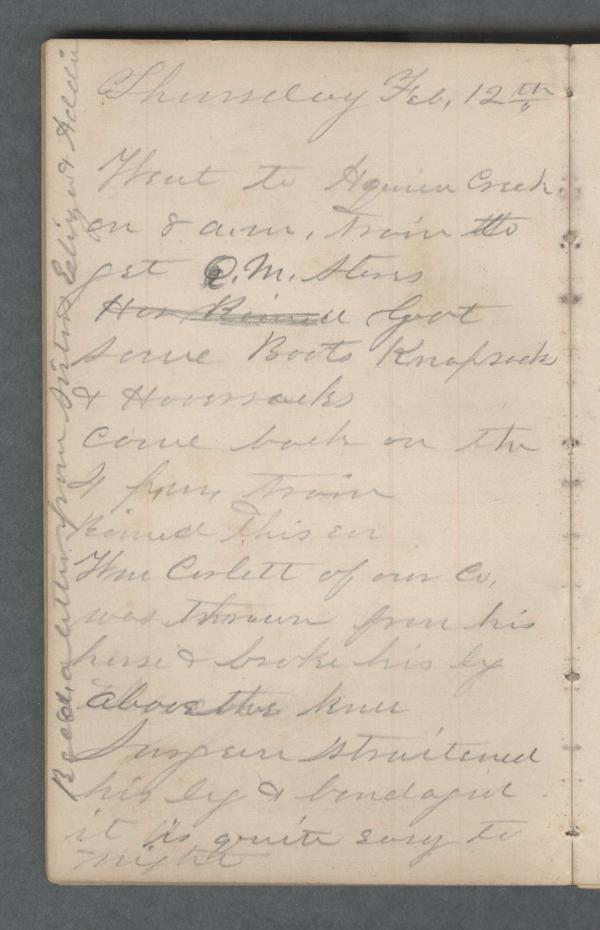 Thursday Feb, 12th
Went to Aquia Creek
on 8 a.m. train to
get Q.M. Stores
Has Rained Got
some Boots Knapsack
& Haversacks
Come back on the
4 p.m. train
Rained this ev
Wm Corlett of our Co,
was thrown from his
horse & broke his leg
above the knee
Surgeon straitened
his leg & bandaged
it is quite easy to
night
Recd a letter from Sister Eliza & Addie